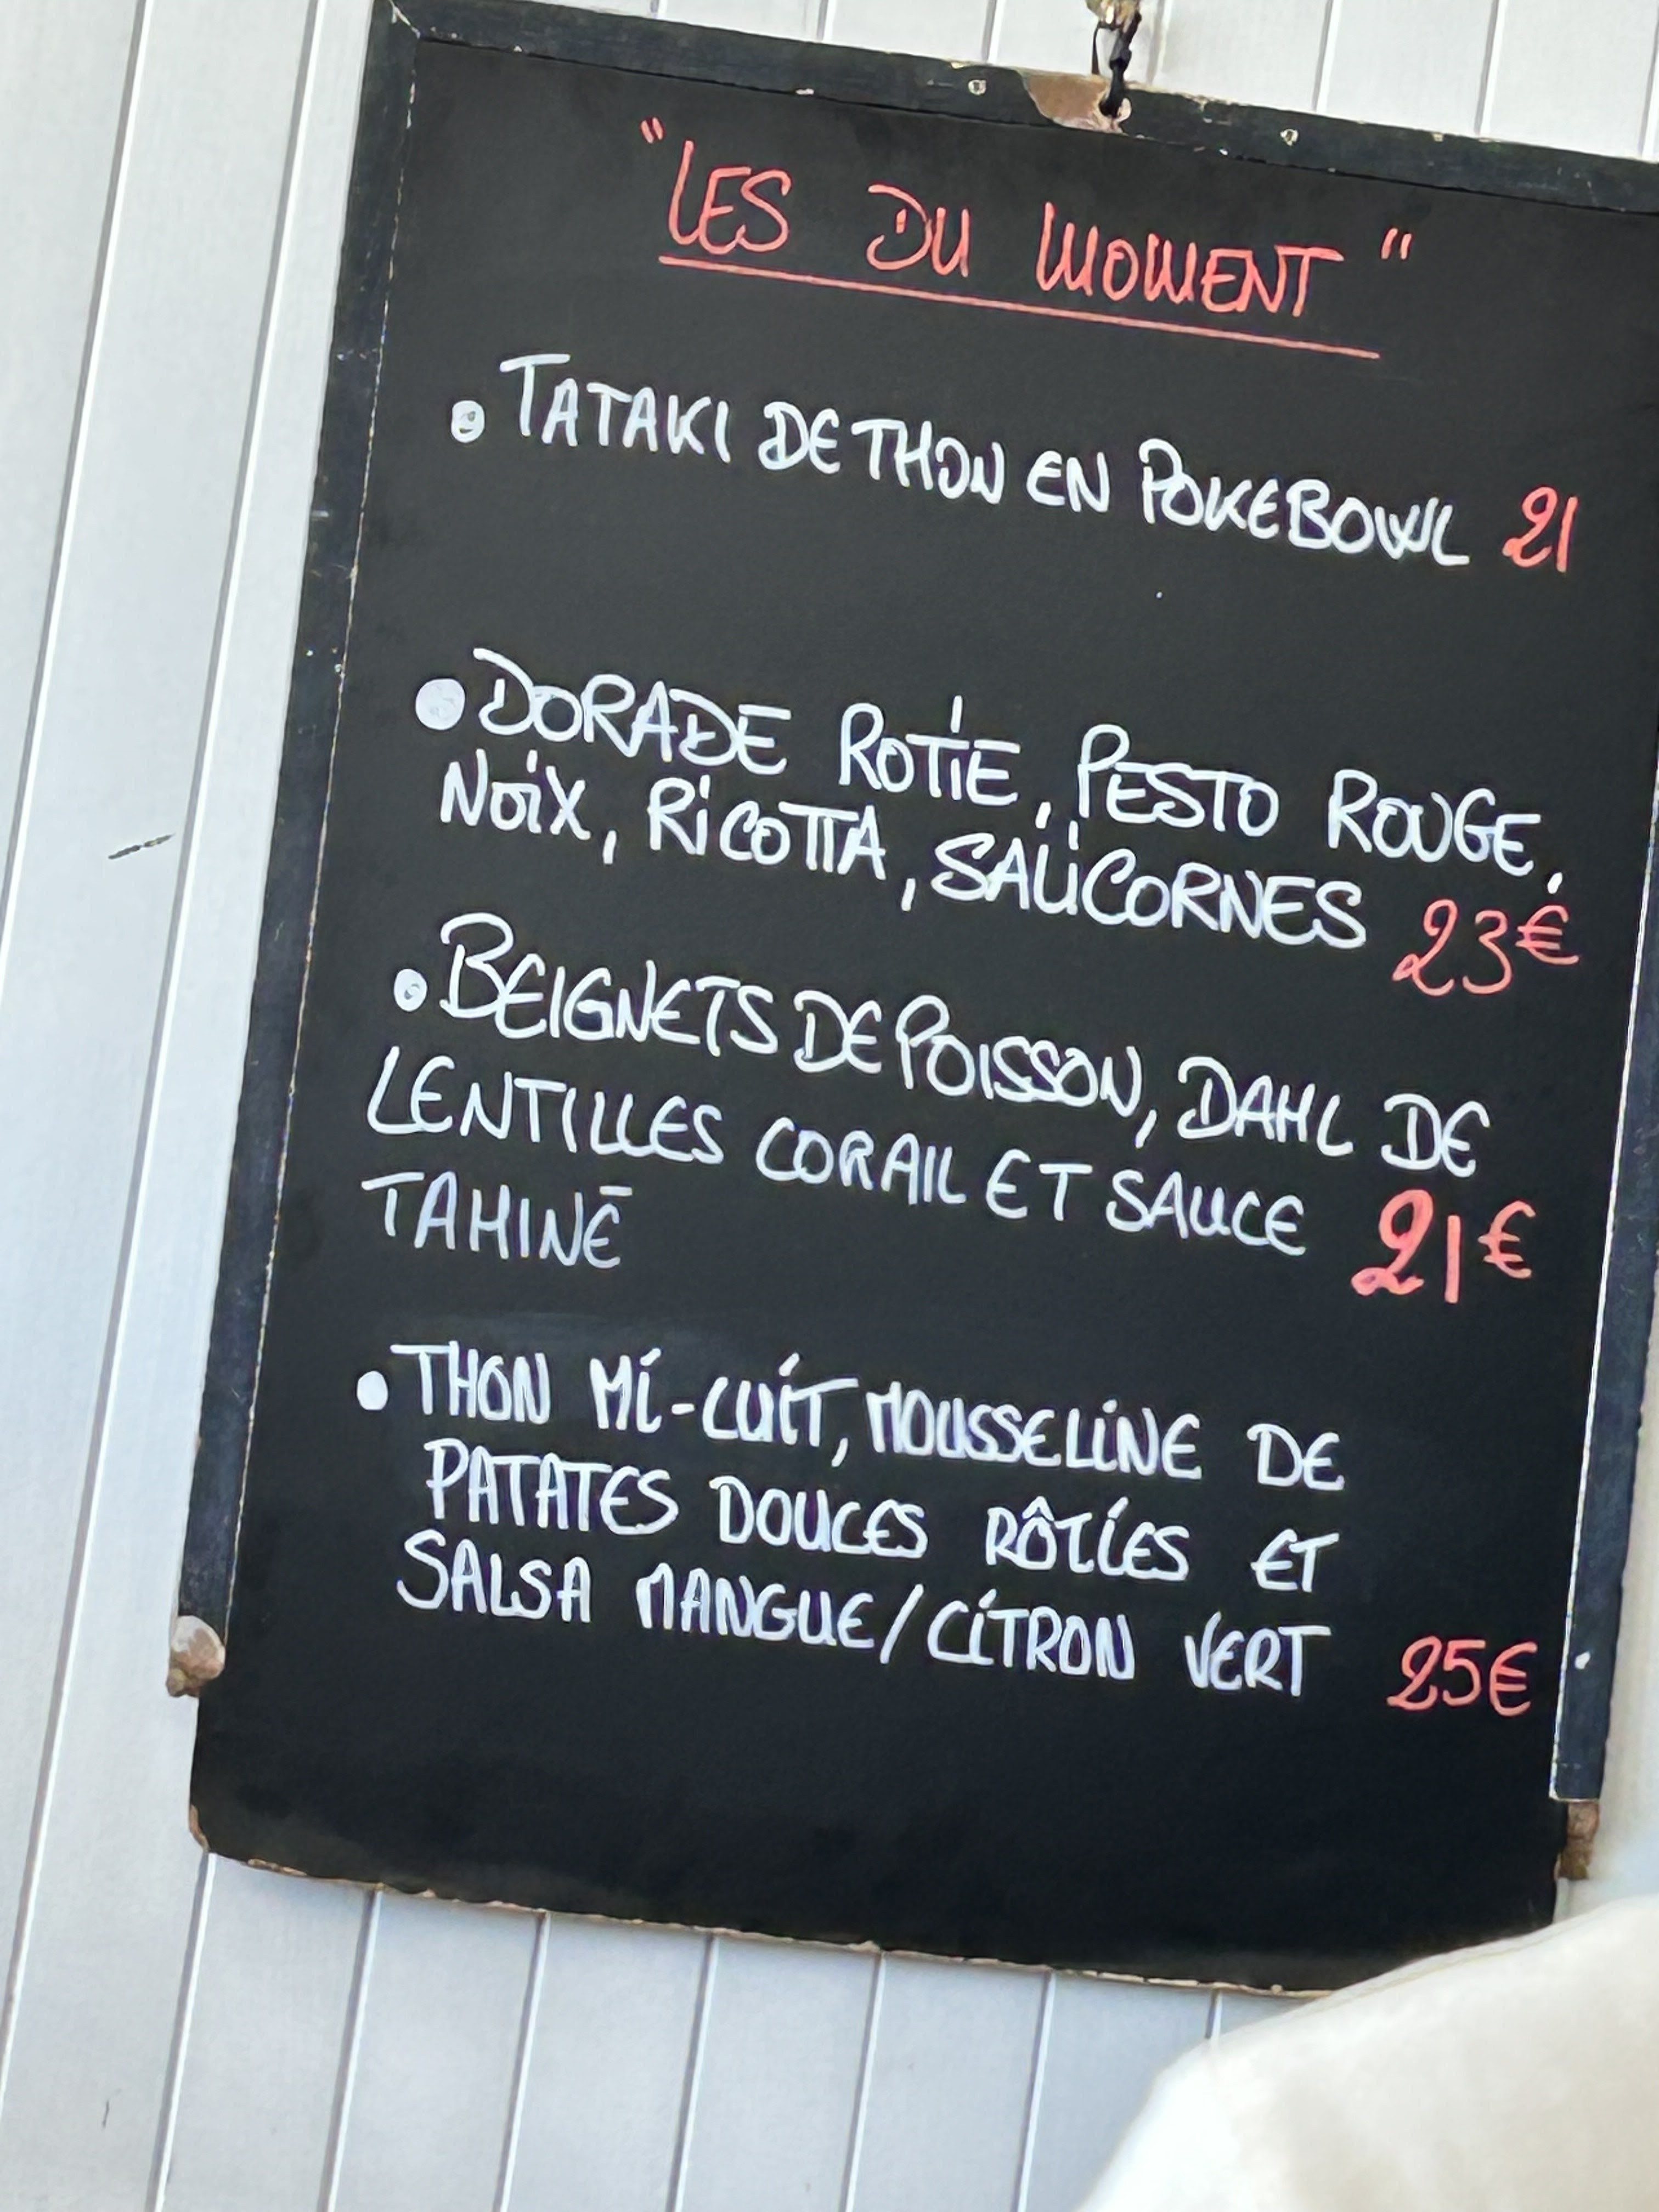 "LES DU MOMENT"
• TATAKI DE THON EN POKEBOWL 21
• DORADE ROTIE, PESTO ROUGE,
NOIX, RICOTTA, SALICORNES 23€
• BEIGNETS DE POISSON, DAHL DE
LENTILLES CORAIL ET SAUCE 21€
TAHINÉ
• THON MI-CUIT, MOUSSELINE DE
PATATES DOUCES RÔTIES ET
SALSA MANGUE/CITRON VERT 25€